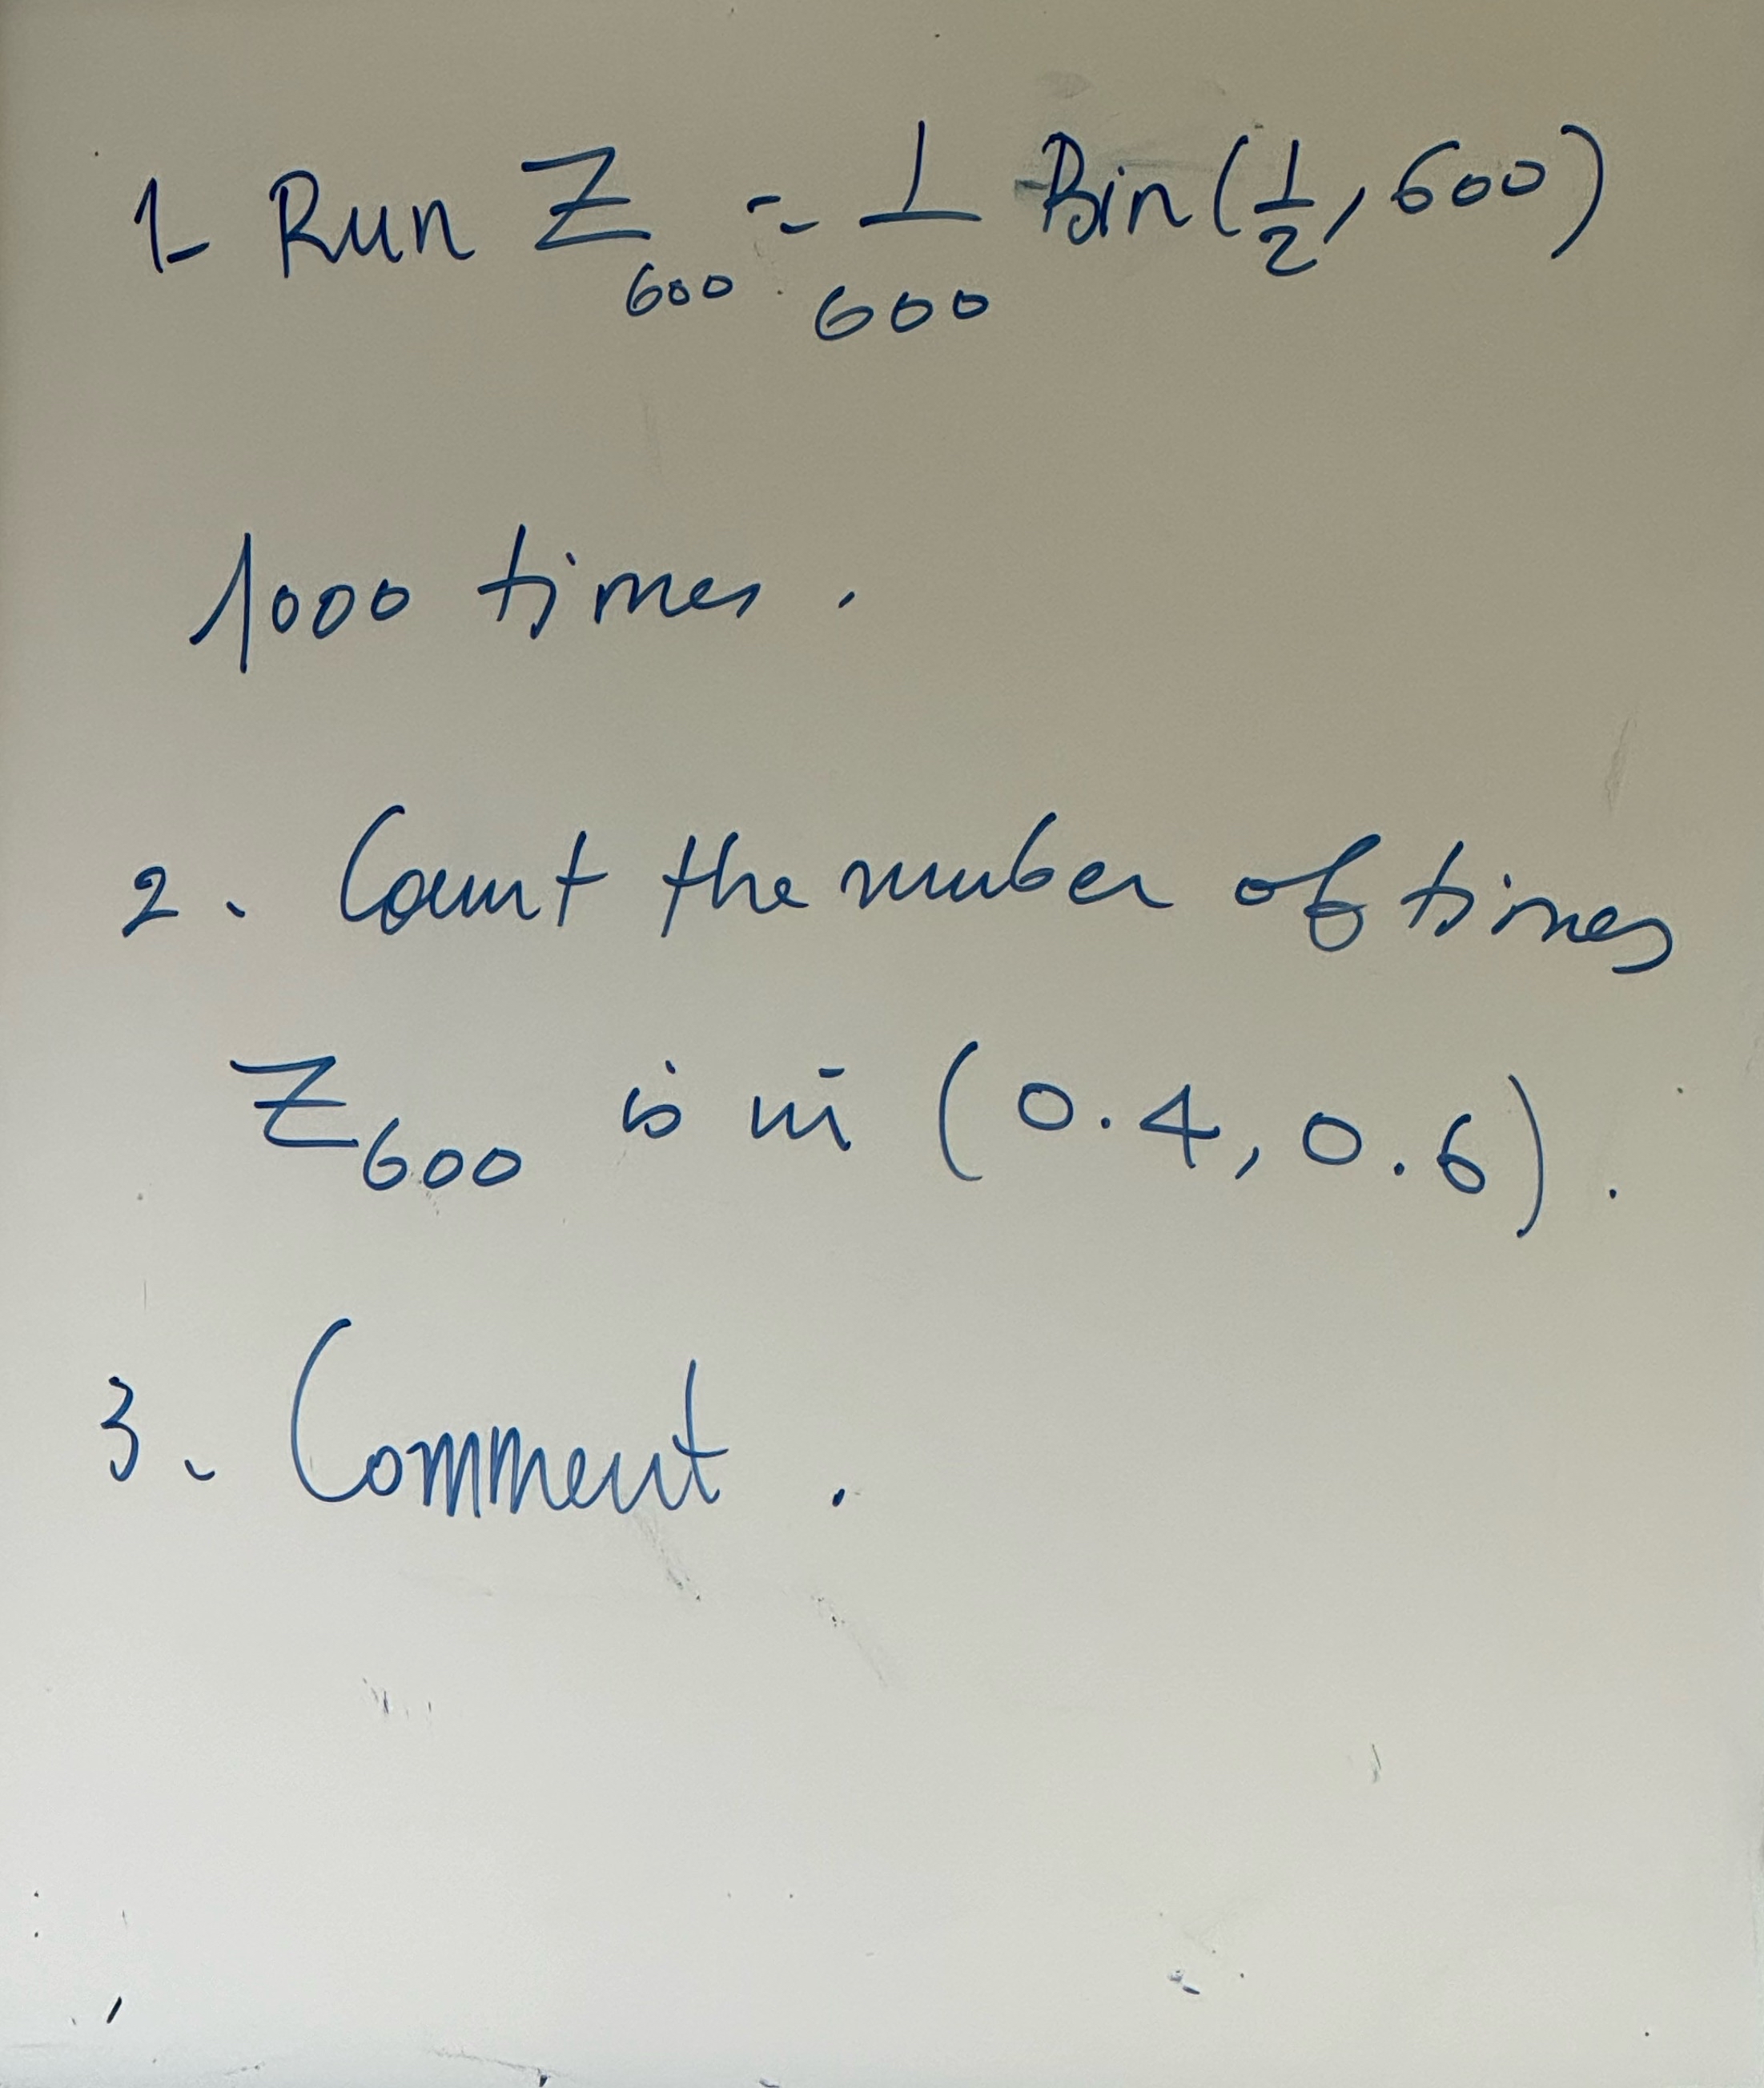 1- Run Z_600 = 1/600 Bin(1/2, 600)
1000 times.
2. Count the number of times
Z_600 is in (0.4, 0.6).
3. Comment.